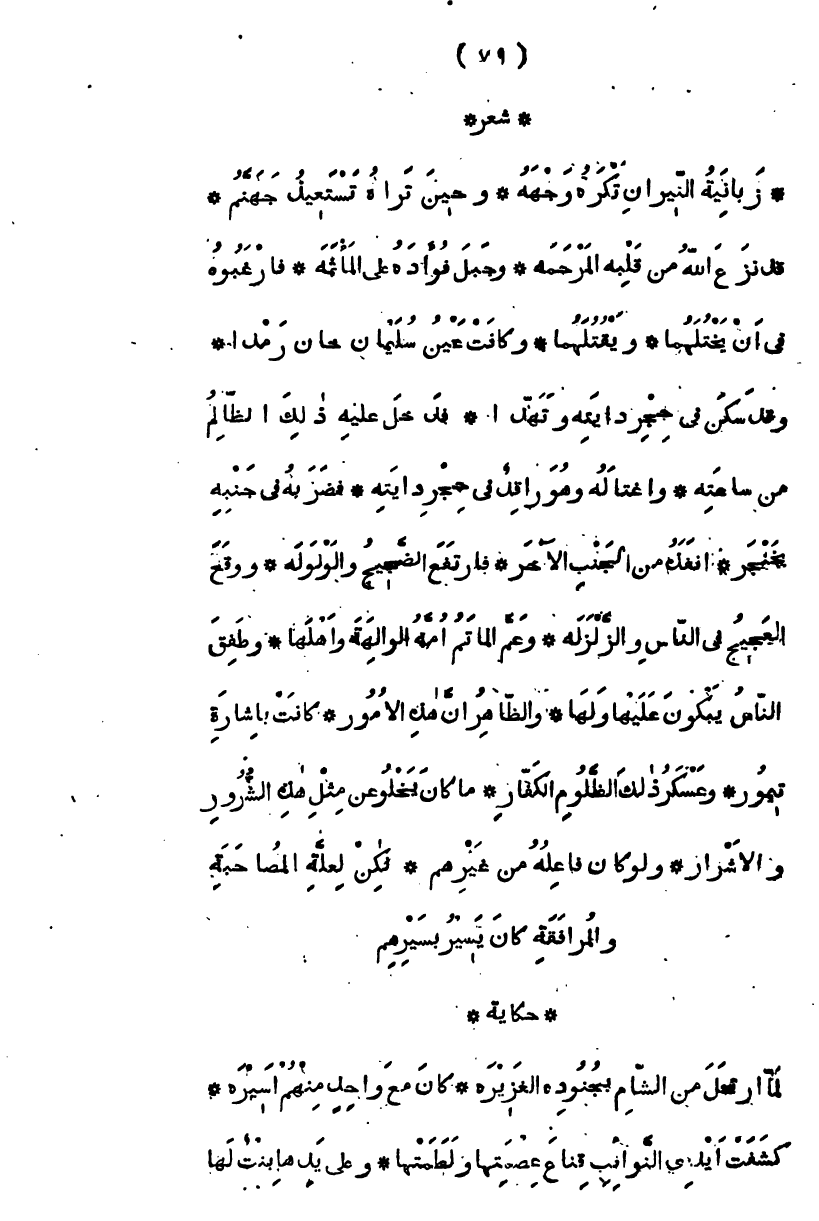 ( ٧٩ )
* شعر *
* زَبانِيَةُ النِّيرانِ تَكْرَهُ وَجْهَهُ * وحِينَ تَراهُ تَسْتَعِيذُ جَهَنَّمُ *
قد نَزَعَ اللهُ من قَلْبِه المَرْحَمَه * وجَبَلَ فُؤَادَهُ على المَأْثَمَه * فارْغَبُوهُ
فى اَنْ يَخْتُلَهُما * ويَقْتُلَهُما * وكانَتْ عَيْنُ سُلَيْمان حان رَمْدا *
وقد سَكَنَ فى حِجْرِ دايَتِه وتَهَدّا * فدَخَلَ عليهِ ذٰلِكَ الظّالِمُ
من ساعَتِه * واغتالَهُ وهُوَ راقِدٌ فى حِجْرِ دايَتِهِ * فضَرَبَهُ فى جَنْبِهِ
بِخَنْجَرٍ * انفَذَهُ من الجَنْبِ الآخَرِ * فارتَفَع الضَّجِيجُ والوَلْوَلَه * ووقَعَ
العَجِيجُ فى النّاسِ والزَّلْزَلَه * وعَمَّ الماتَمُ اُمَّهُ الوالِهَةَ واَهْلَها * وطَفِقَ
النّاسُ يَبْكُونَ عَلَيْها ولَها * والظّاهِرُ انَّ هٰذِهِ الاُمُور * كانَتْ باِشارَةِ
تيمُور * وعَسْكَرُ ذٰلِكَ الظَّلُومِ الكَفّار * ما كانَ يَخْلُو عن مِثْلِ هٰذِهِ الشُّرُورِ
والاَشْرار * ولو كان فاعِلُهُ من غَيْرِهم * لٰكِنْ لِعِلَّةِ المُصاحَبَةِ
والمُرافَقَةِ كانَ يَسِيرُ بسَيْرِهِم
* حكاية *
لَمّا ارتحَلَ من الشّامِ بجُنُودِه الغَزِيْرَه * كانَ معَ واحِدٍ مِنْهُمْ اَسِيْرَه *
كشَفَتْ اَيْدِي النَّوائِبِ قِناعَ عِصْمَتِها ولَطَمَتْها * وعلى يَدِها بِنْتٌ لَها